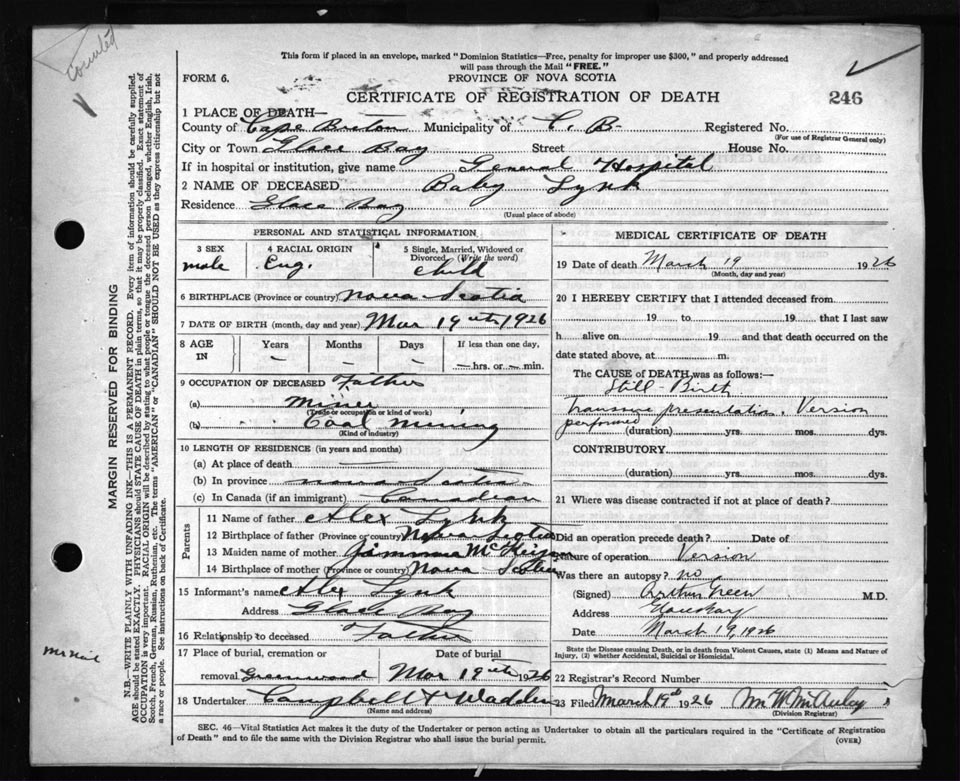 Counted
This form if placed in an envelope, marked "Dominion Statistics—Free, penalty for improper use $300," and properly addressed
will pass through the Mail "FREE."
FORM 6.
PROVINCE OF NOVA SCOTIA
CERTIFICATE OF REGISTRATION OF DEATH
246
1 PLACE OF DEATH—
County of Cape Breton Municipality of C. B. Registered No.
(For use of Registrar General only)
City or Town Glace Bay Street House No.
If in hospital or institution, give name General Hospital
2 NAME OF DECEASED Baby Lynk
Residence Glace Bay
(Usual place of abode)
PERSONAL AND STATISTICAL INFORMATION
3 SEX
male
4 RACIAL ORIGIN
Eng.
5 Single, Married, Widowed or
Divorced. (Write the word)
child
6 BIRTHPLACE (Province or country) Nova Scotia
7 DATE OF BIRTH (month, day and year) Mar 19th, 1926
8 AGE
IN
Years
—
Months
—
Days
—
If less than one day,
— hrs. or — min.
9 OCCUPATION OF DECEASED Father
(a) Miner
(Trade or occupation or kind of work)
(b) Coal mining
(Kind of industry)
10 LENGTH OF RESIDENCE (in years and months)
(a) At place of death —
(b) In province Nova Scotia
(c) In Canada (if an immigrant) Canadian
Parents
11 Name of father Alex Lynk
12 Birthplace of father (Province or country) Nova Scotia
13 Maiden name of mother
14 Birthplace of mother (Province or country) Nova Scotia
15 Informant's name Alex Lynk
Address Glace Bay
16 Relationship to deceased Father
17 Place of burial, cremation or
removal Greenwood
Date of burial
Mar 19th 1926
18 Undertaker Campbell & Wadden
(Name and address)
MEDICAL CERTIFICATE OF DEATH
19 Date of death March 19 1926
(Month, day and year)
20 I HEREBY CERTIFY that I attended deceased from
19 to 19 that I last saw
h alive on 19 and that death occurred on the
date stated above, at m.
The CAUSE of DEATH was as follows:—
Still-Birth
presentation. Version
performed
(duration) yrs. mos. dys.
CONTRIBUTORY
(duration) yrs. mos. dys.
21 Where was disease contracted if not at place of death?
Did an operation precede death? Date of
Nature of operation Version
Was there an autopsy? no
(Signed) Arthur Green M.D.
Address
Date March 19, 1926
State the Disease causing Death, or in death from Violent Causes, state (1) Means and Nature of
Injury, (2) whether Accidental, Suicidal or Homicidal.
22 Registrar's Record Number
23 Filed March 19th 1926 Wm W McAulay
(Division Registrar)
SEC. 46—Vital Statistics Act makes it the duty of the Undertaker or person acting as Undertaker to obtain all the particulars required in the "Certificate of Registration
of Death" and to file the same with the Division Registrar who shall issue the burial permit.
(OVER)
MARGIN RESERVED FOR BINDING
N.B.—WRITE PLAINLY WITH UNFADING INK—THIS IS A PERMANENT RECORD. Every item of information should be carefully supplied.
AGE should be stated EXACTLY. PHYSICIANS should STATE CAUSE OF DEATH in plain terms, so that it may be properly classified. Exact statement of
OCCUPATION is very important. RACIAL ORIGIN will be described by stating to what people or tongue the deceased person belonged, whether English, Irish,
Scotch, French, German, Russian, Ruthenian, etc. The terms "AMERICAN" or "CANADIAN" SHOULD NOT BE USED as they express citizenship but not
a race or people. See instructions on back of Certificate.